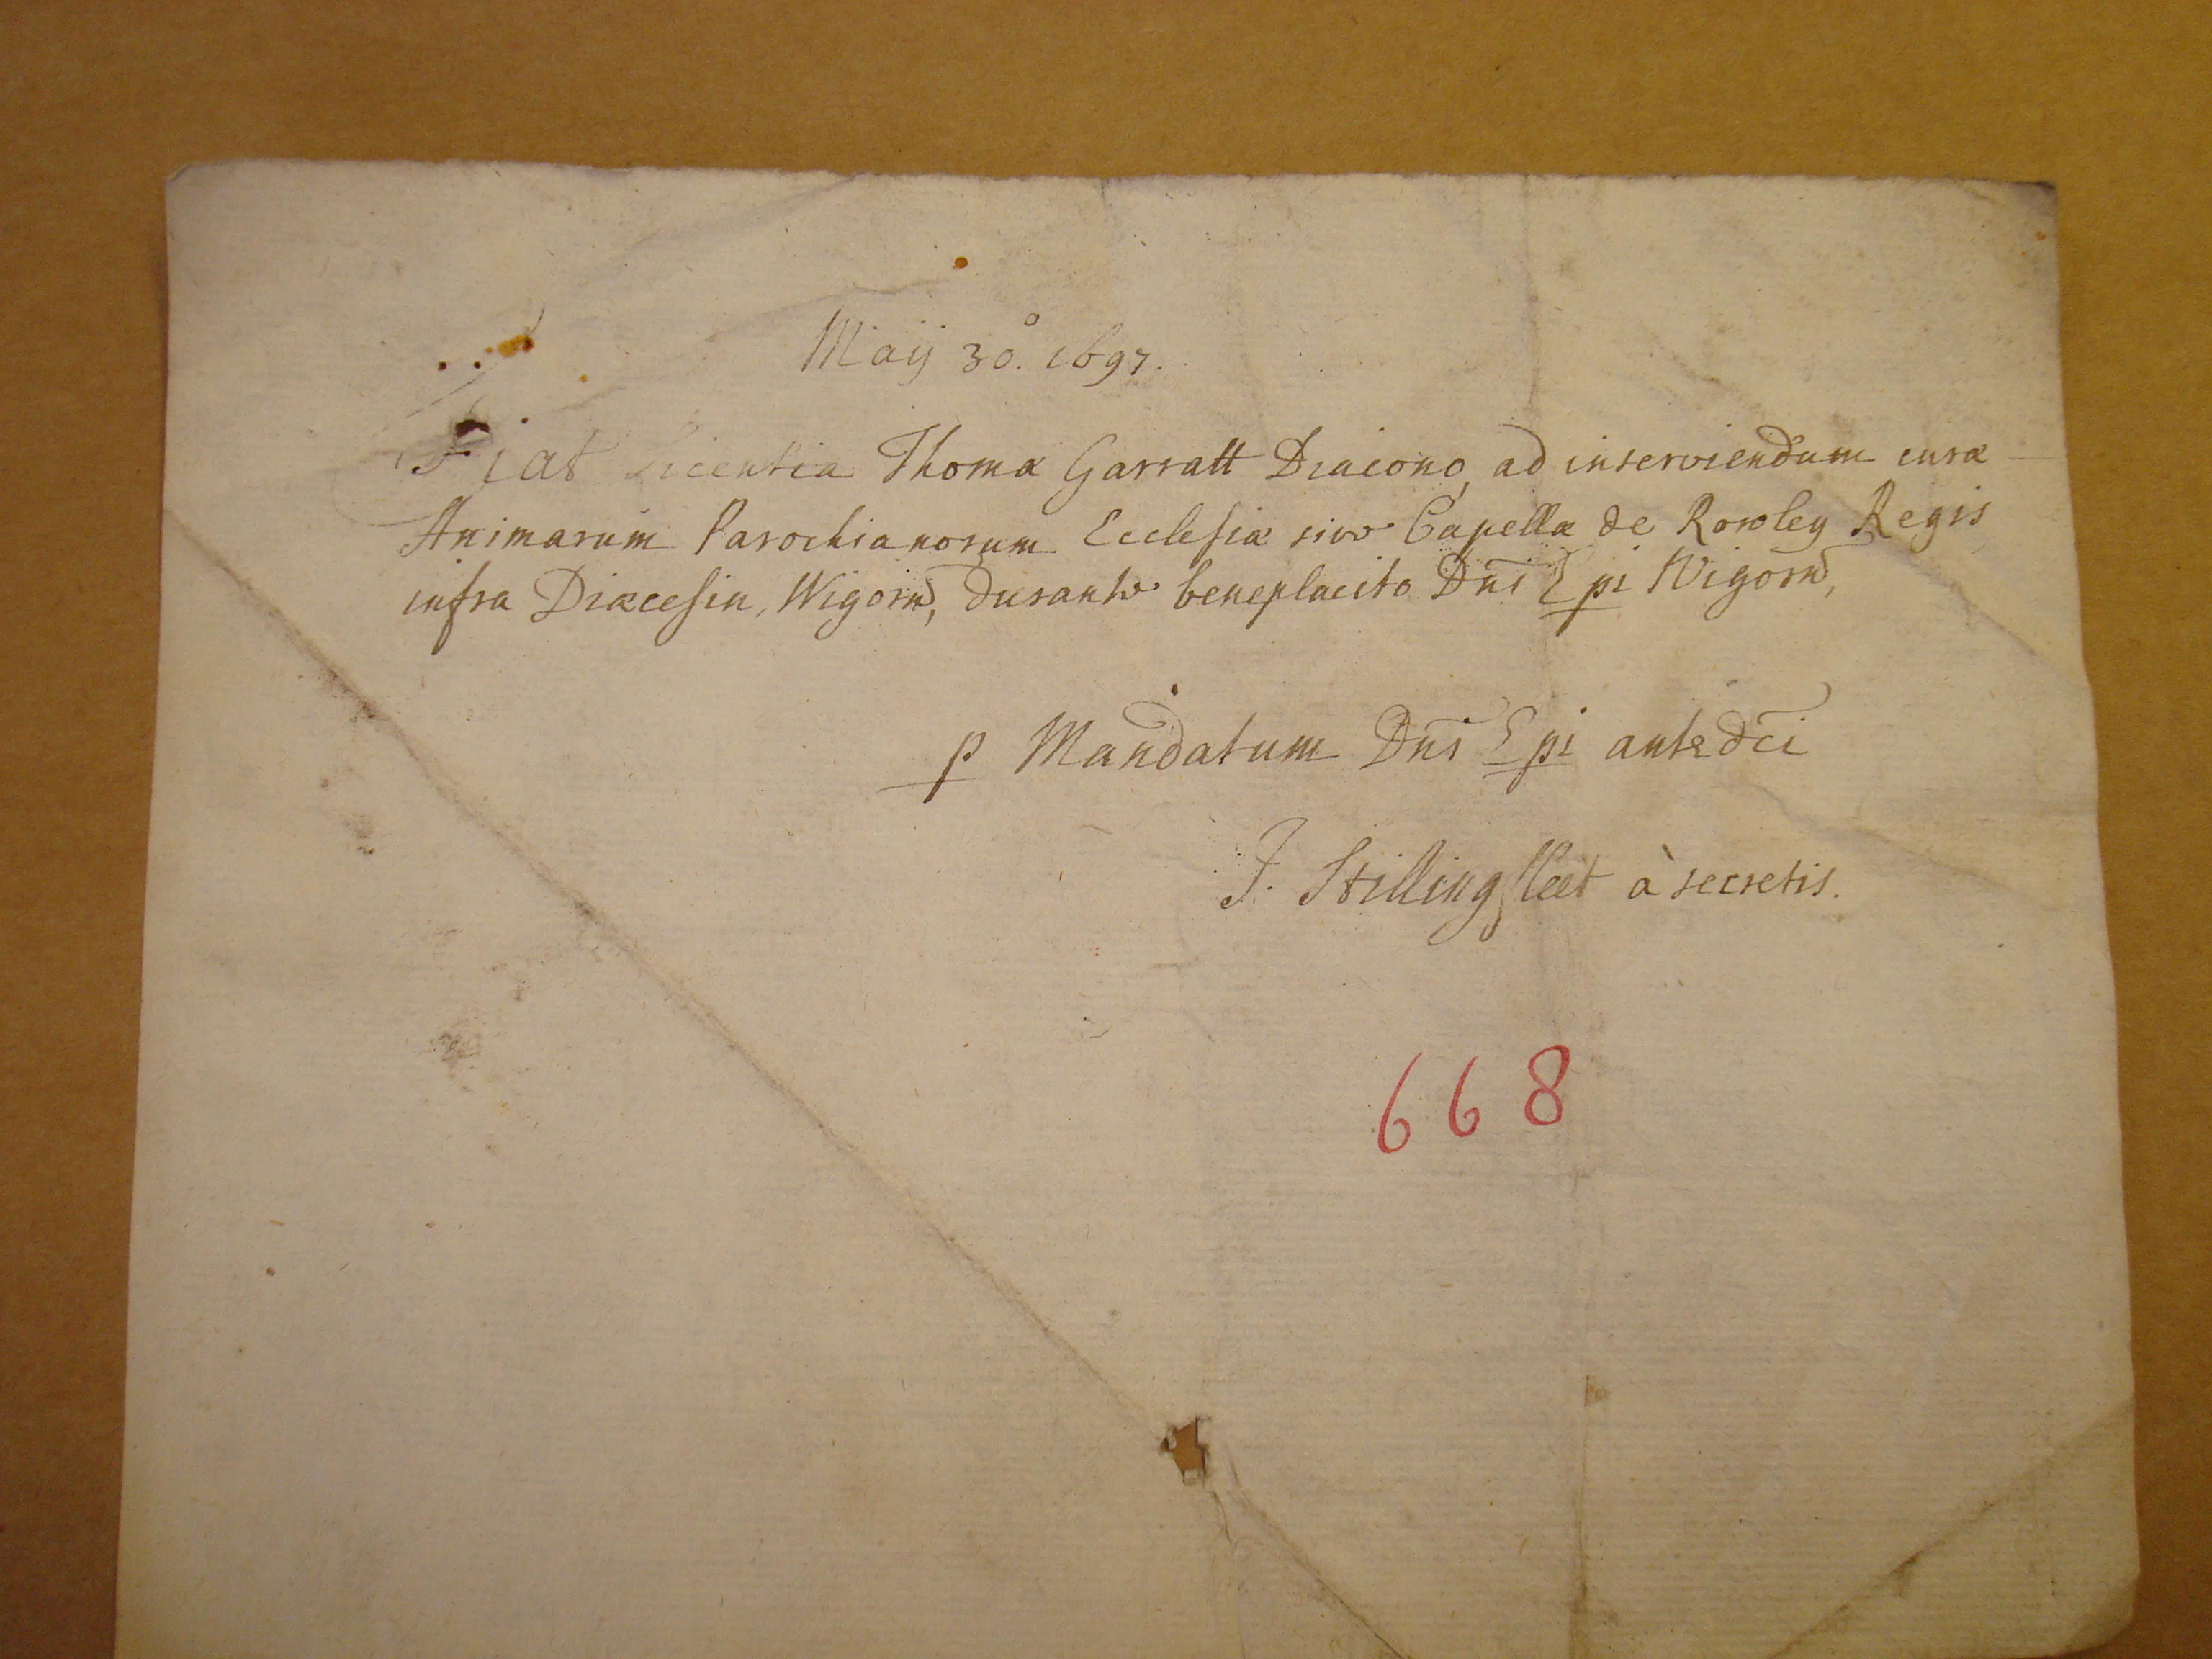 Maij 30.° 1697.
Fiat Licentia Thomæ Garratt Diacono, ad inserviendum curæ
Animarum Parochianorum Ecclesiæ sive Capellæ de Rowley Regis
infra Diæcesin, Wigorn, durante beneplacito Dni Epi Wigorn,
p Mandatum Dni Epi antedci
J. Stillingfleet à secretis.
668